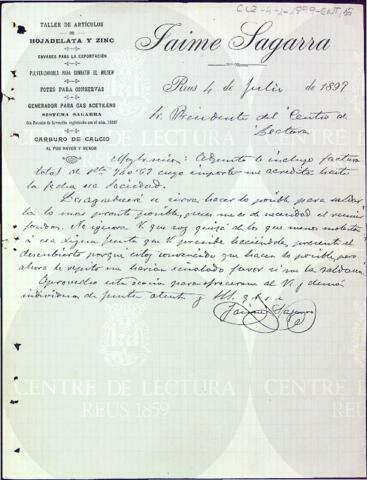 TALLER DE ARTÍCULOS
DE
HOJADELATA Y ZINC
ENVASES PARA LA EXPORTACIÓN
PULVERIZADORES PARA COMBATIR EL MILDEW
POTES PARA CONSERVAS
GENERADOR PARA GAS ACETILENO
SISTEMA SAGARRA
CARBURO DE CALCIO
AL POR MAYOR Y MENOR
Jaime Sagarra
Reus 4 de Julio de 1899
Sr. Presidente del Centro de
Lectura
Muy Sr. mio: Adjunto le incluyo factura
total de Pts 760'69 cuyo importe me acredita hasta
la fecha esa Sociedad.
Desagradeceré se sirva hacer lo posible para saldar
la lo mas pronto posible, pues me es de necesidad el reunir
fondos. No ignora V. que soy quizá de los que menos molestan
á esa digna Junta que V. preside haciéndole presente el
descubierto porque estoy convencido que hacen lo posible, pero
ahora le repito me harian señalado favor si me la saldaran
Aprovecho esta ocasión para ofrecerme al V. y demás
individuos de Junta atent. y SS. q. b. s. m.
Jaime Sagarra
CENTRE DE LECTURA
REUS 1859
CENTRE DE LECTURA
REUS 1859